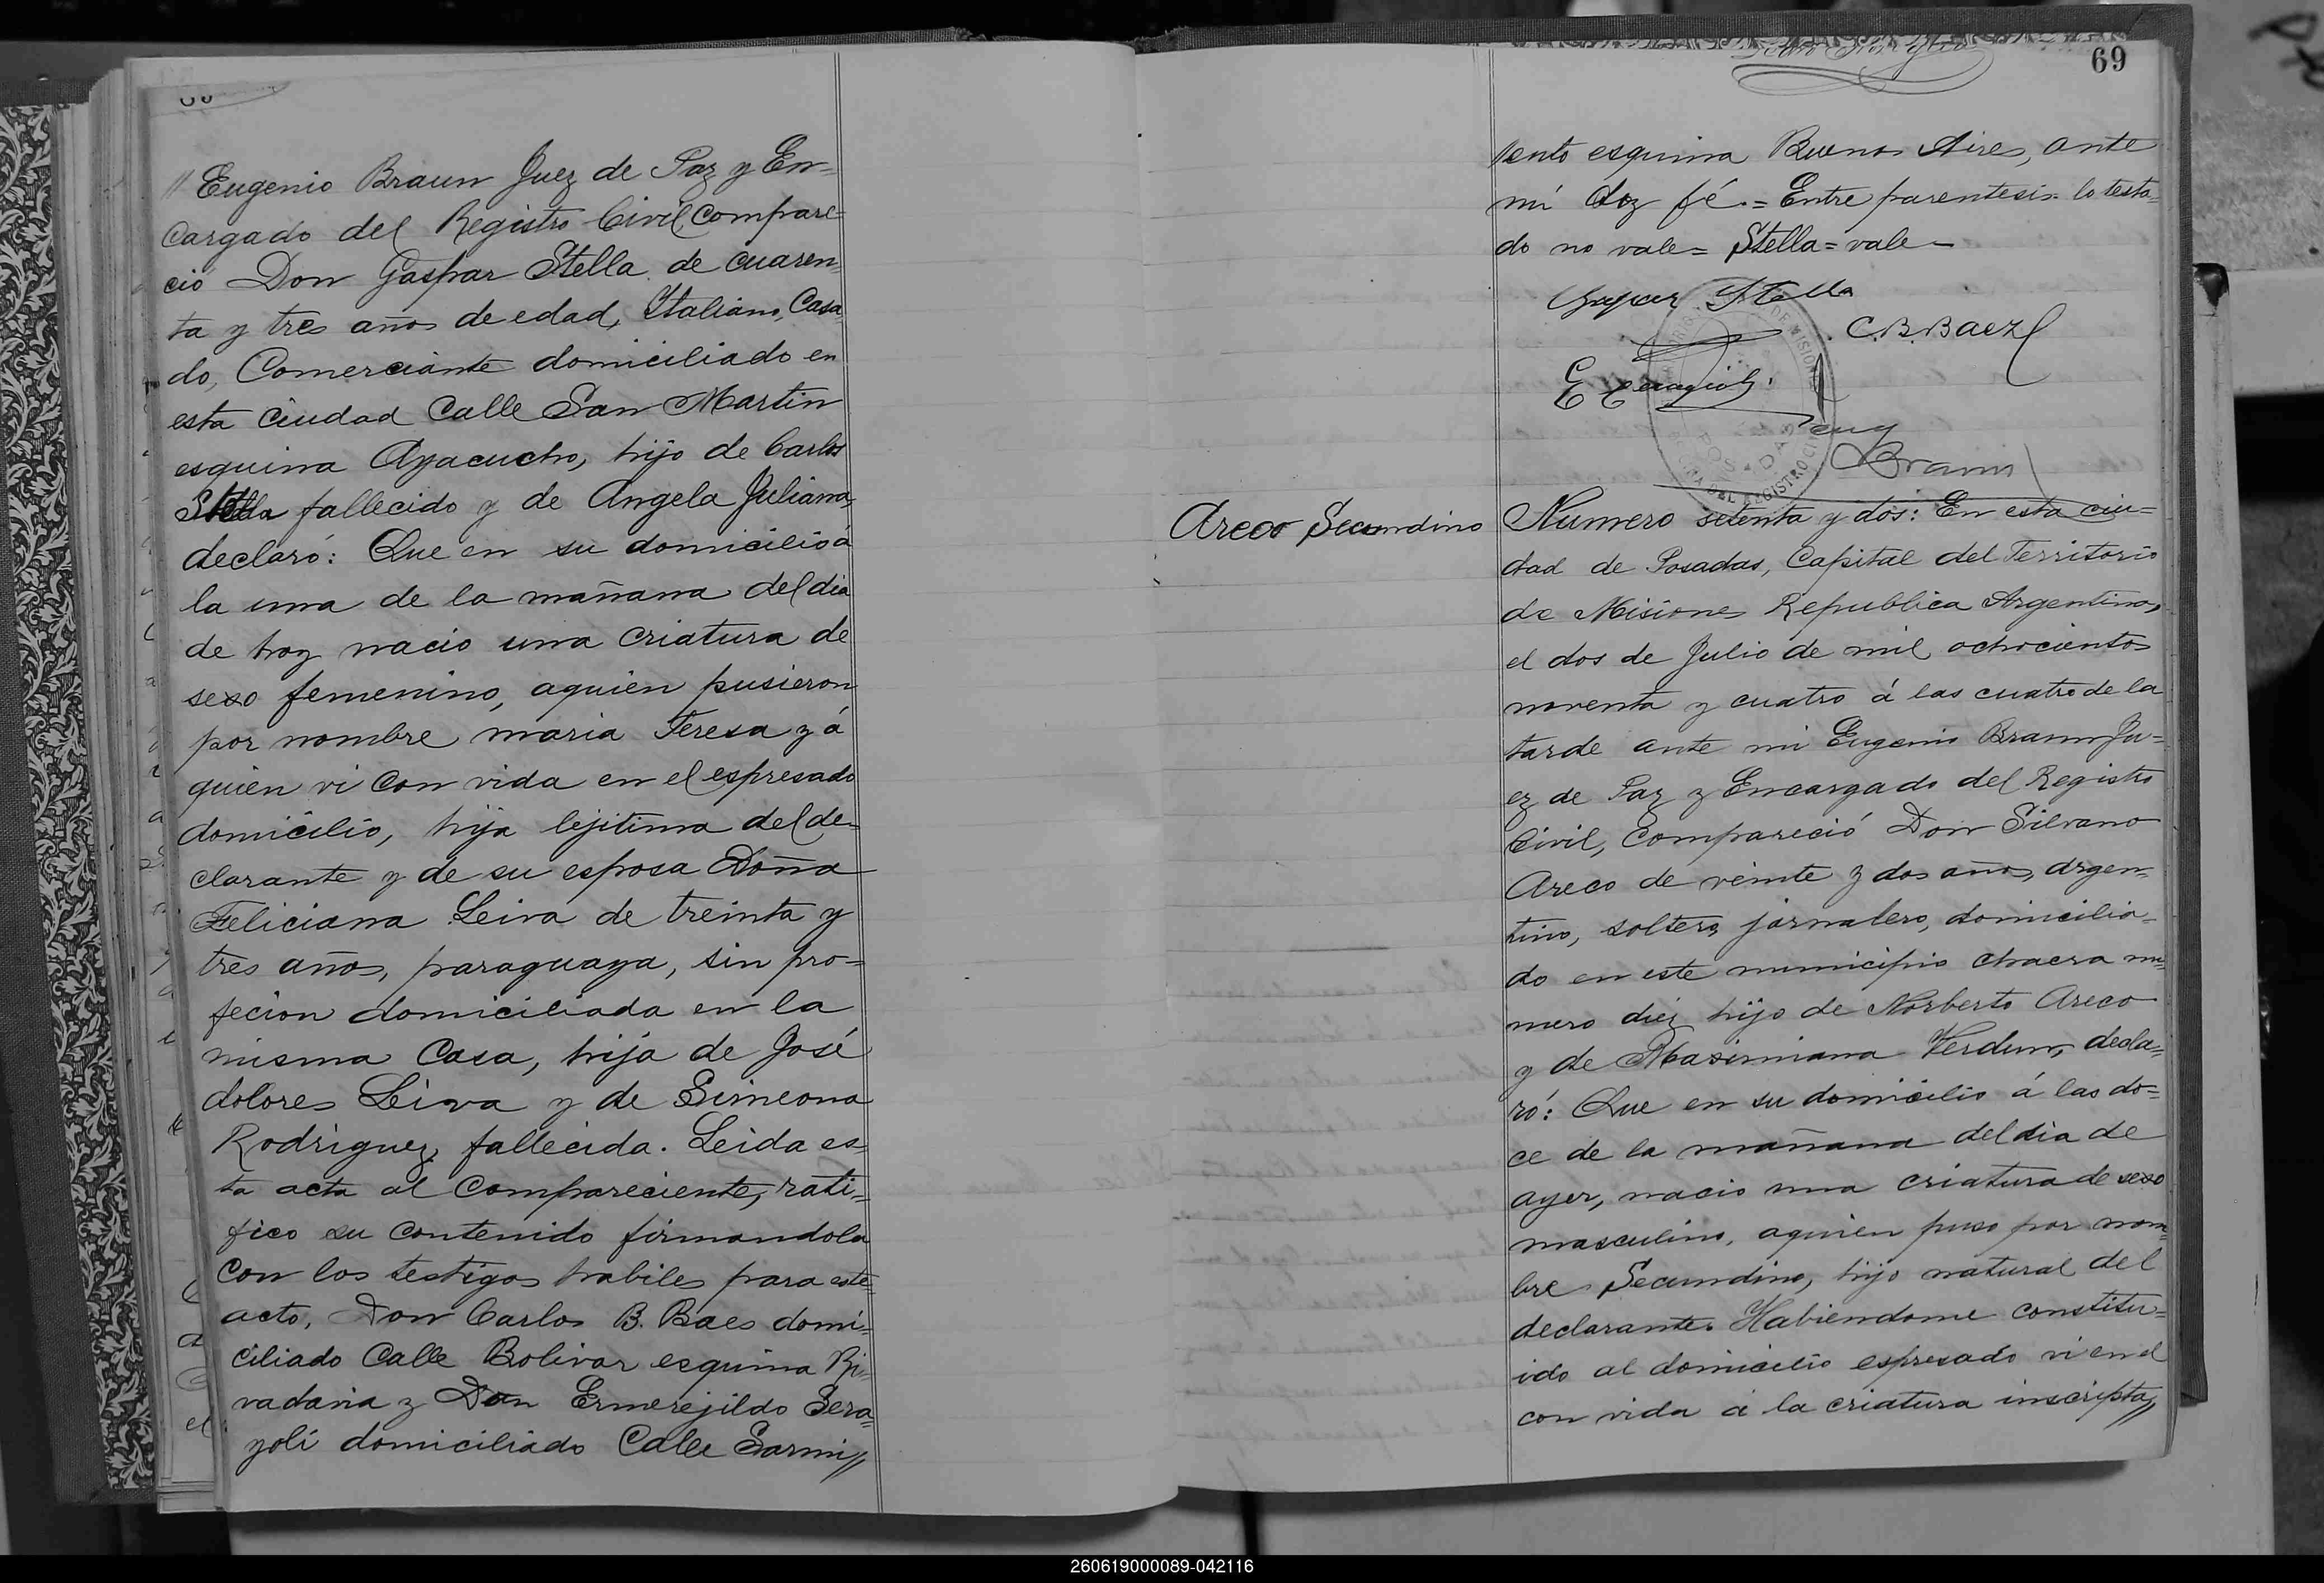 // Eugenio Braun Juez de Paz y En-
cargado del Registro Civil compare-
ció Don Gaspar Stella de cuaren-
ta y tres años de edad, Italiano, Casa-
do, Comerciante domiciliado en
esta ciudad Calle San Martin
esquina Ayacucho, hijo de Carlos
Stella fallecido y de Angela Juliana,
declaró: Que en su domicilio á
la una de la mañana del dia
de hoy nacio una criatura de
sexo femenino, aquien pusieron
por nombre maria Teresa y á
quien vi con vida en el espresado
domicilio, hija lejitima del de-
clarante y de su esposa Doña
Feliciana Leiva de treinta y
tres años, paraguaya, sin pro-
fecion domiciliada en la
misma Casa, hija de José
dolores Leiva y de Simeona
Rodriguez, fallecida. Leida es-
ta acta al compareciente, rati-
fico su contenido firmandola
con los testigos habiles para este
acto, Don Carlos B. Baes domi-
ciliado Calle Bolivar esquina Ri-
vadavia y Don Ermerejildo Sera-
yoli domiciliado Calle Sarmi//
69
//ento esquina Buenos Aires, ante
mi doy fé.= Entre parentesis lo testa-
do no vale= Stella= vale-
Gaspar Stella
C.B. Baez
Eug
Braun
POSADAS
Areco Secundino
Numero setenta y dos: En esta ciu-
dad de Posadas, Capital del Territorio
de Misiones Republica Argentina,
el dos de Julio de mil ochocientos
noventa y cuatro á las cuatro de la
tarde ante mi Eugenio Braun Ju-
ez de Paz y Encargado del Registro
Civil, compareció Don Silvano
Areco de veinte y dos años, argen-
tino, soltero, jornalero, domicilia-
do en este municipio chacra nu-
mero diez hijo de Norberto Areco
y de Maximiana Verdun, decla-
ró: Que en su domicilio á las do-
ce de la mañana del dia de
ayer, nacio una criatura de sexo
masculino, aquien puso por nom-
bre Secundino, hijo natural del
declarante. Habiendome constitu-
ido al domicilio espresado vi en el
con vida á la criatura inscripta,//
260619000089-042116